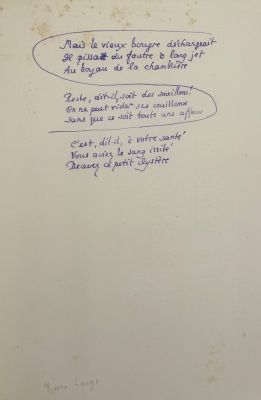 Mais le vieux bougre déchargeait
Il pissait du foutre à long jet
Au boyau de la chambrière
Peste, dit-il, soit des souillons !
On ne peut vider ses couillons
sans que ce soit toute une affaire
C'est, dit-il, à votre santé !
Vous aviez le sang irrité
Recevez ce petit clystère
Pierre Louÿs